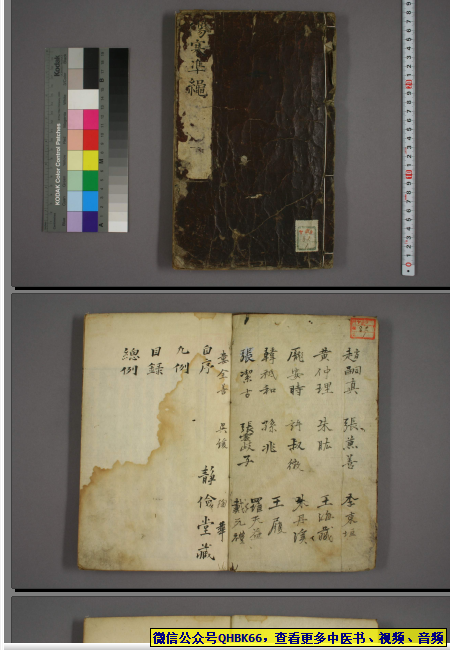 傷寒準繩
Kodak
KODAK Color Control Patches
趙嗣真 張兼善 李東垣
黃仲理 朱肱 王海藏
龐安時 許叔微 朱丹溪
韓祗和 孫兆 王履
張潔古 羅天益
婁全善 吳綬 戴元禮
自序
凡例
目錄
總例
靜儉堂藏
微信公众号QHBK66，查看更多中医书、视频、音频